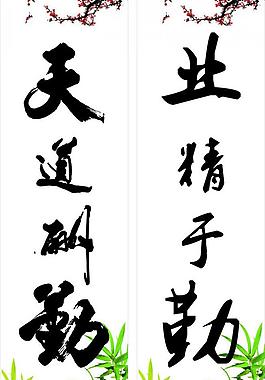 业精于勤
天道酬勤